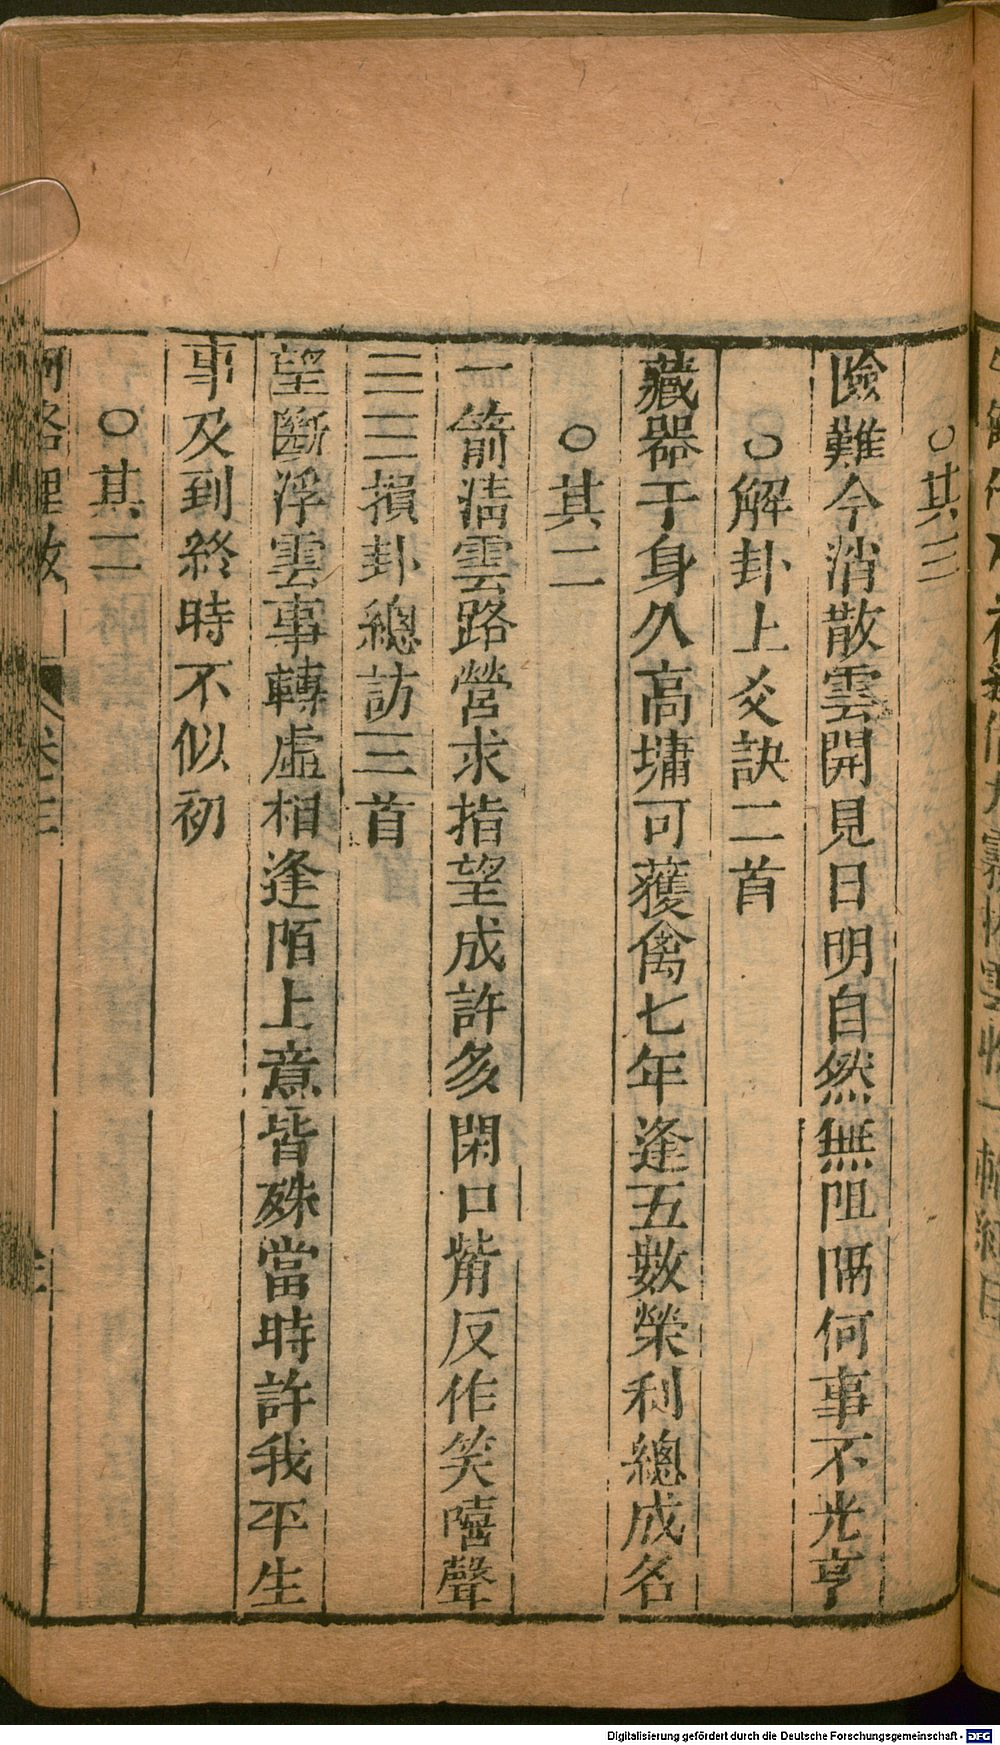 ○其三
險難今消散雲開見日明自然無阻隔何事不光亨
○解卦上爻訣二首
藏器于身久高墉可獲禽七年逢五數榮利總成名
○其二
一箭淸雲路營求指望成許多閑口觜反作笑嘻聲
三三損卦總訪三首
望斷浮雲事轉虛相逢陌上意皆殊當時許我平生
事及到終時不似初
○其二
河洛理數 卷三
Digitalisierung gefördert durch die Deutsche Forschungsgemeinschaft - DFG